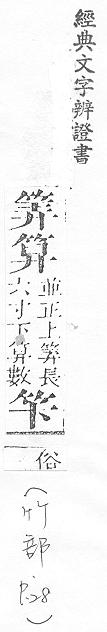 經典文字辨證書
筭算
並正上筭長
六寸下算數
笇
俗
(竹部 P.28)